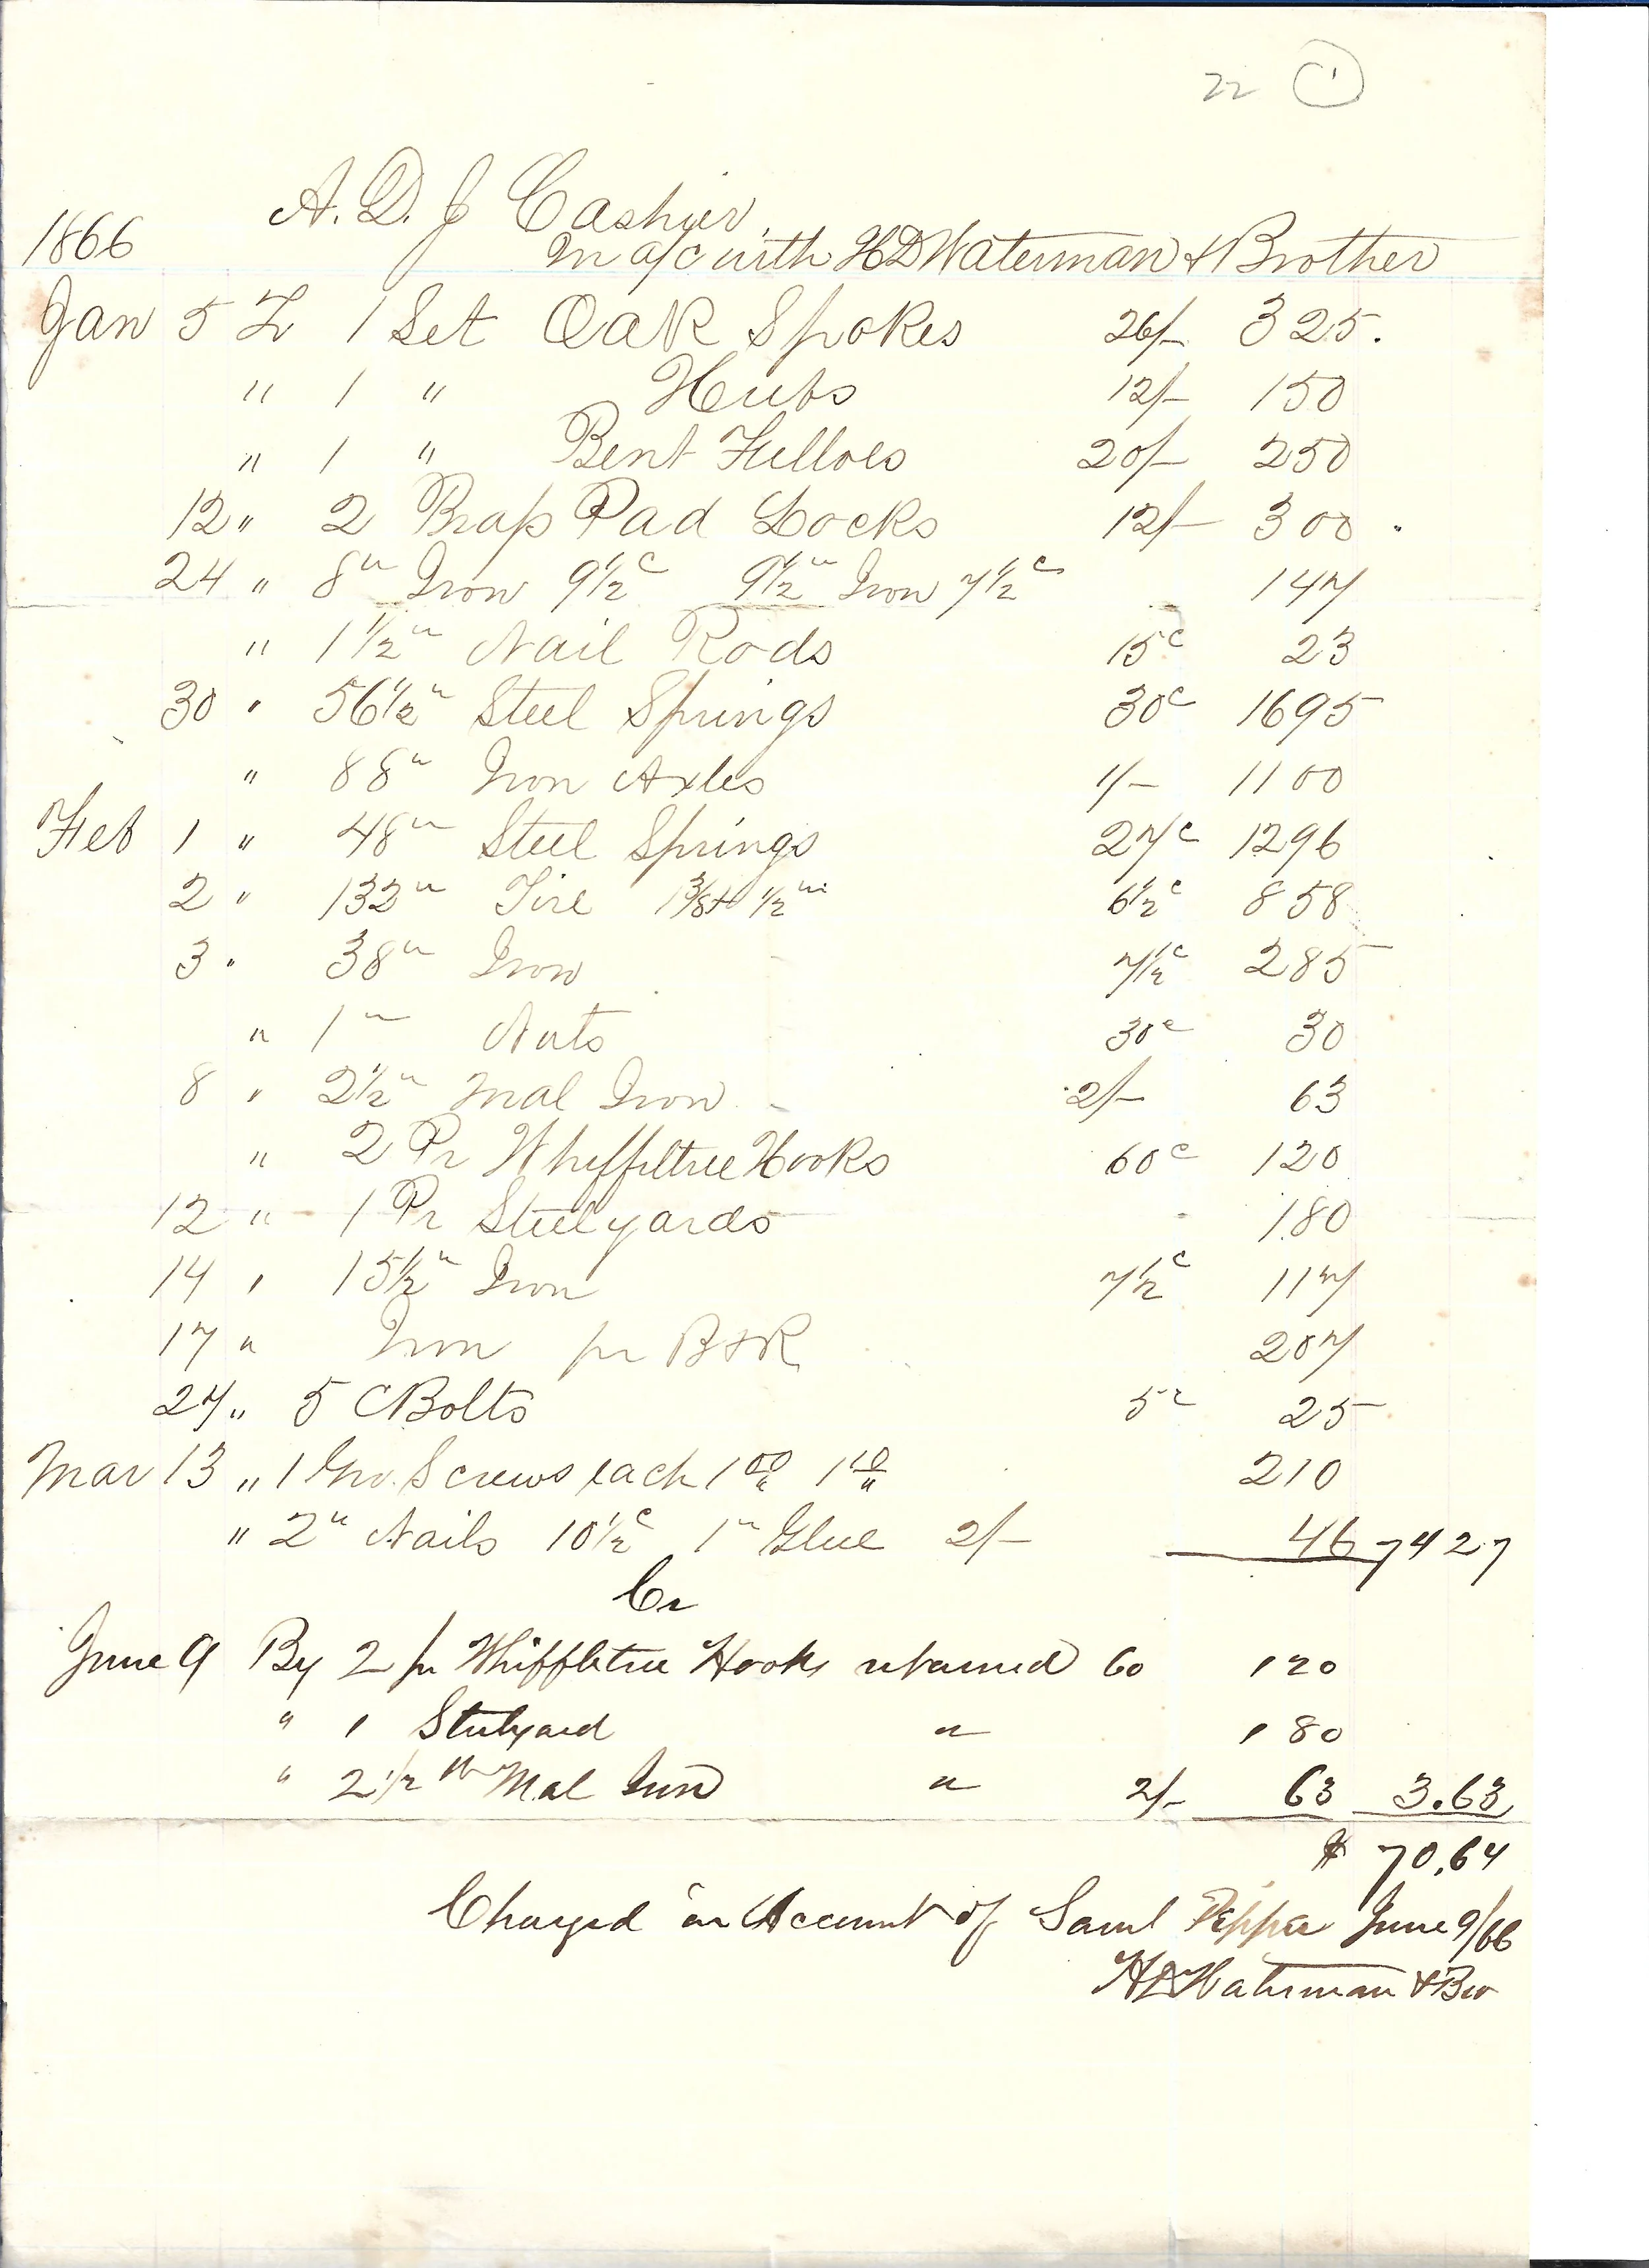 22 1
A. D. J Cashier
1866 In a/c with HD Waterman & Brother
Jan 5 To 1 Set Oak Spokes 26/- 325.
" 1 " Hubs 12/- 150
" 1 " Bent Felloes 20/- 250
12 " 2 Brass Pad Locks 12/- 300
24 " 8" Iron 9½c 9½" Iron 7½c 147
" 1½" Nail Rods 15c 23
30 " 56½" Steel Springs 30c 1695
" 88" Iron Axles 1/- 1100
Feb 1 " 48" Steel Springs 27c 1296
2 " 132" Tire 1 3/8 x ½ in 6½c 858
3 " 38" Iron 7½c 285
" 1" Nuts 30c 30
8 " 2½" Mal Iron 2/- 63
" 2 Pr Whiffeltree Hooks 60c 120
12 " 1 Pr Steelyards 180
14 " 15½" Iron 7½c 117
17 " Iron pr B&R 207
27 " 5 C Bolts 5c 25
Mar 13 " 1 Gro. Screws each 1 00 1 10 210
" 2" Nails 10½c 1" Glue 2/- 46 7427
Cr
June 9 By 2 pr Whiffletree Hooks returned 60 120
" 1 Steelyard " 180
" 2½ lb Mal Iron " 2/- 63 3.63
$ 70.64
Charged in Account of Saml Pepper June 9/66
HD Waterman & Bro